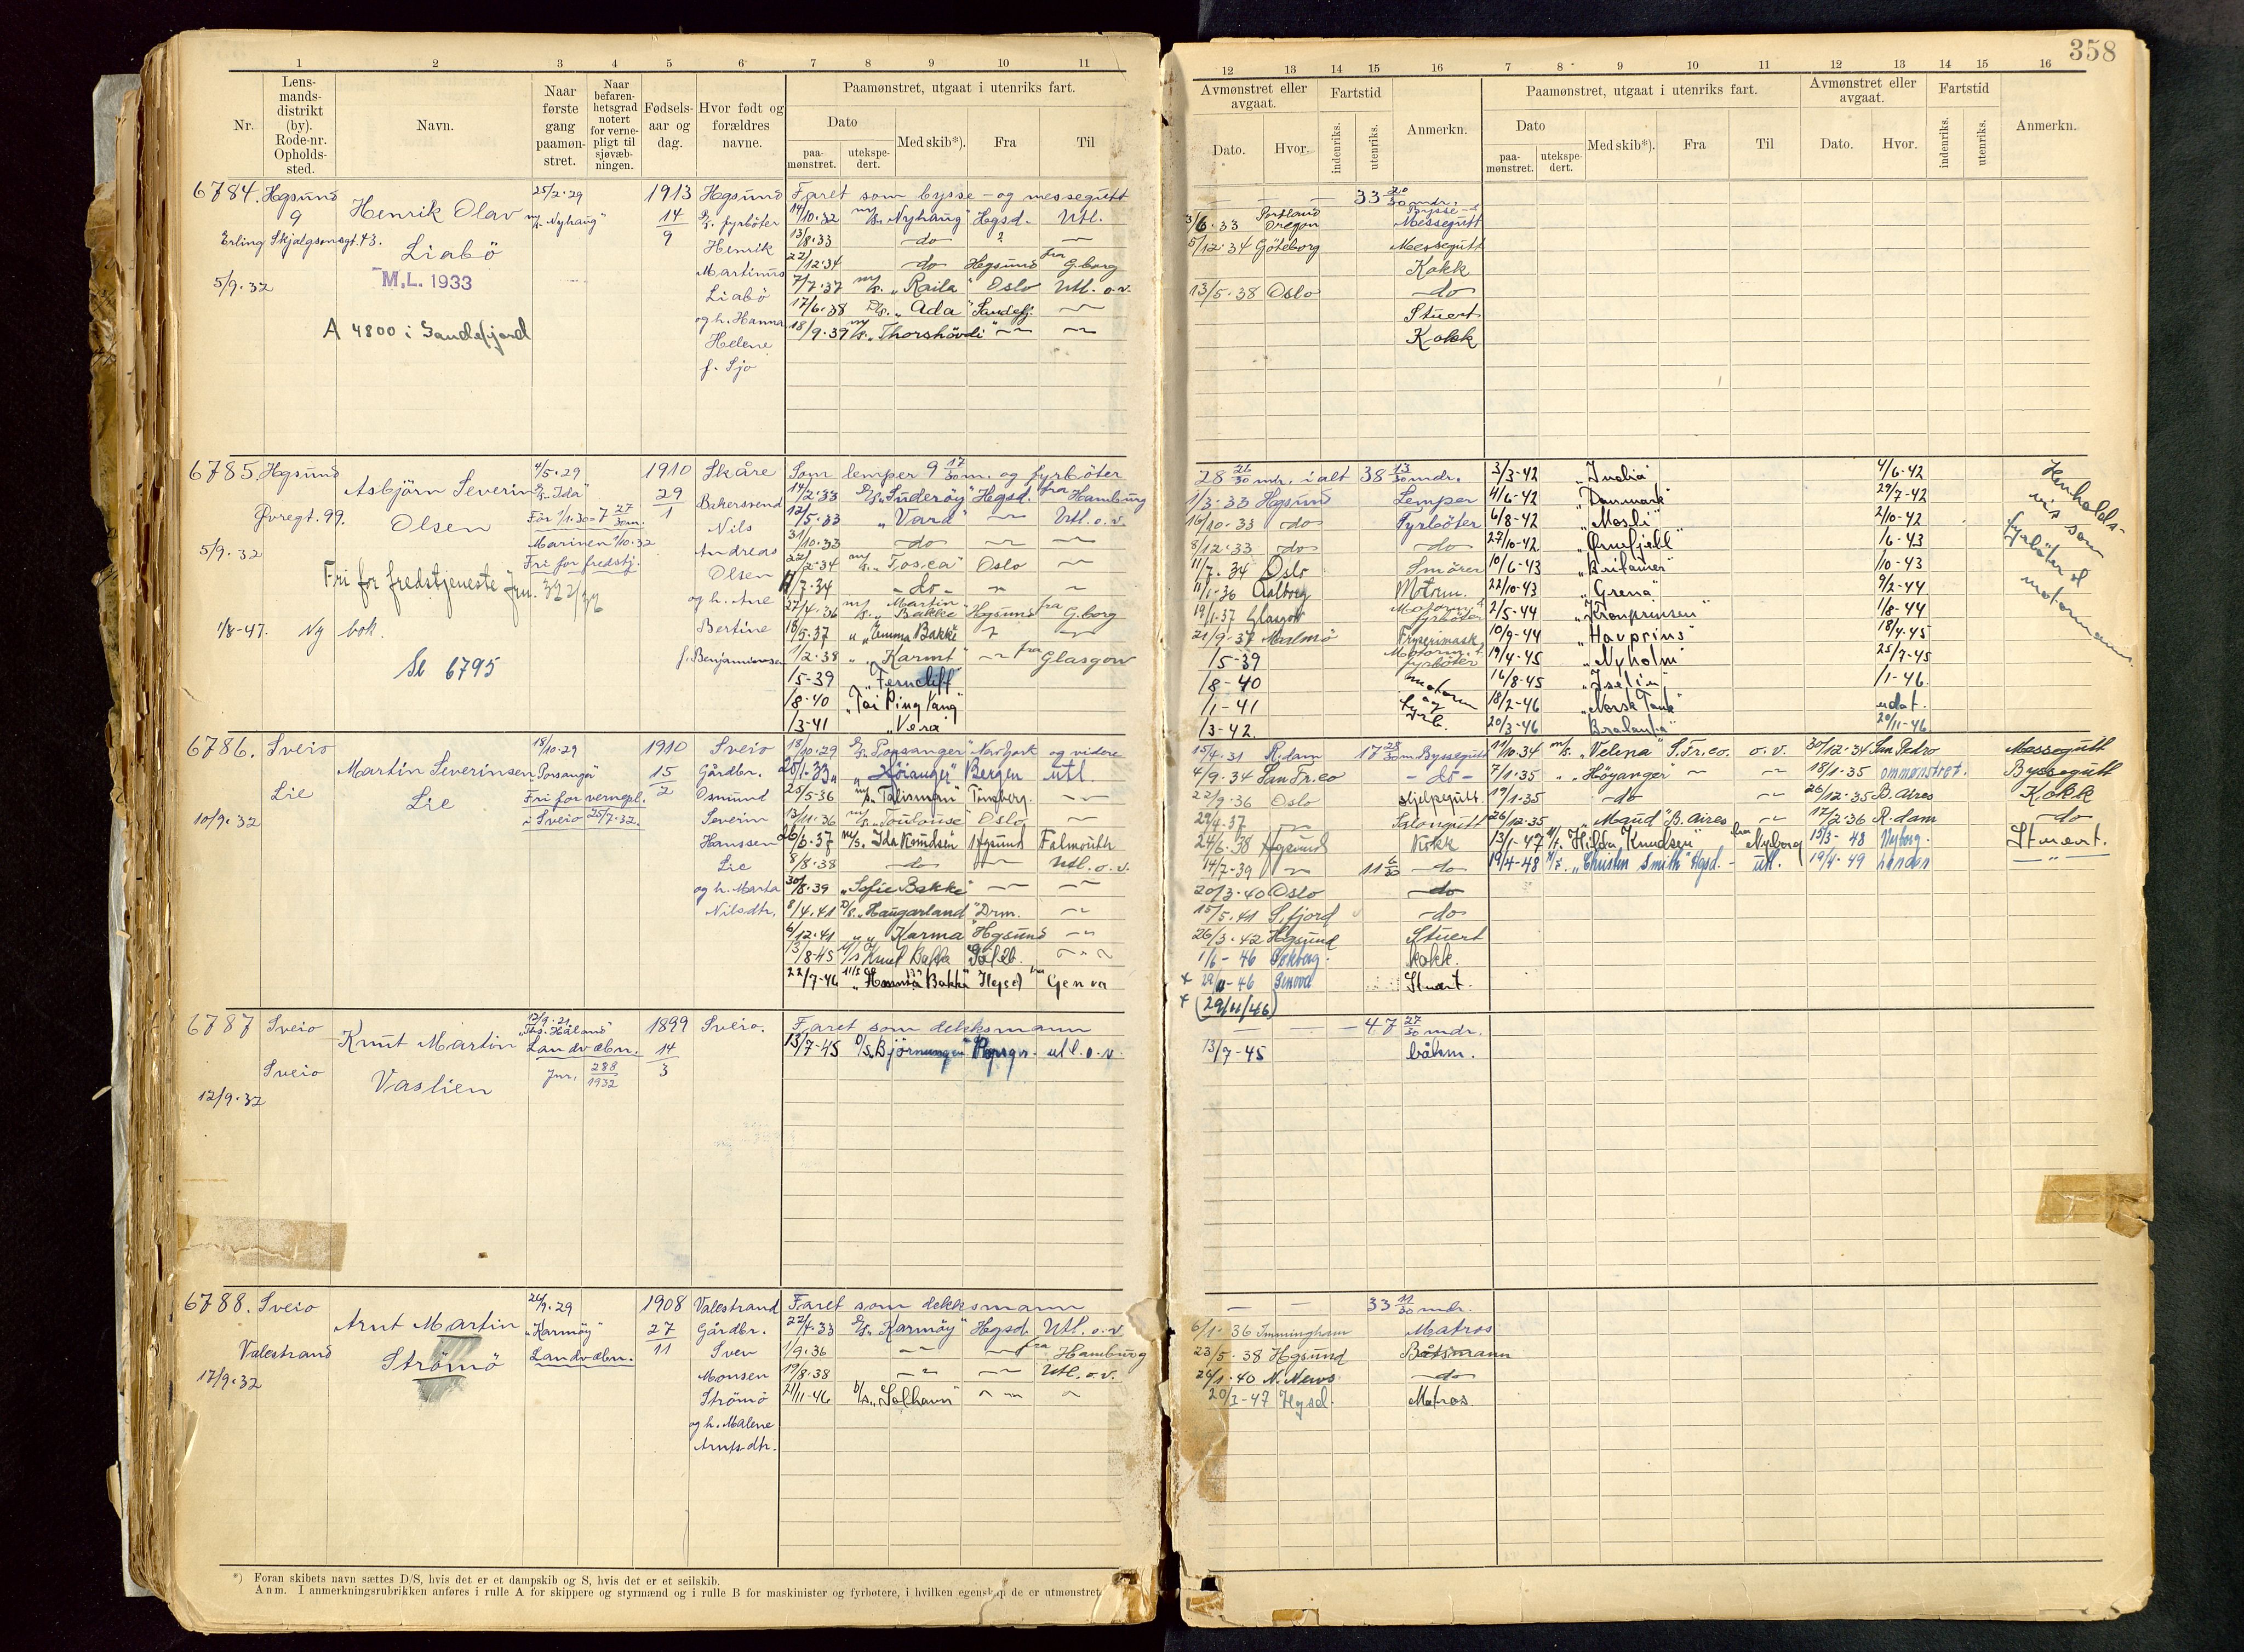 358
1 2 3 4 5 6 7 8 9 10 11
12 13 14 15 16 7 8 9 10 11 12 13 14 15 16
Nr.
Lens-
mands-
distrikt
(by).
Rode-nr.
Opholds-
sted.
Navn.
Naar
første
gang
paamøn-
stret.
Naar
befaren-
hetsgrad
notert
for verne-
pligt til
sjøvæb-
ningen.
Fødsels-
aar og
dag.
Hvor født og
forældres
navne.
Paamønstret, utgaat i utenriks fart.
Dato
paa-
mønstret.
utekspe-
dert.
Med skib*).
Fra
Til
Avmønstret eller
avgaat.
Dato.
Hvor.
Fartstid
indenriks.
utenriks.
Anmerkn.
Paamønstret, utgaat i utenriks fart.
Dato
paa-
mønstret.
utekspe-
dert.
Med skib*).
Fra
Til
Avmønstret eller
avgaat.
Dato.
Hvor.
Fartstid
indenriks.
utenriks.
Anmerkn.
6784. Hgsund
9
Erling Skjalgsonsgt. 43.
5/9.32
Henrik Olav
Liabö
M.L. 1933
A 4800 i Sandefjord
25/2.29
m/s. "Nyhaug"
1913
14
9
Hgsund
fyrböter
Henrik
Martinus
Liabö
og h. Hanna
Helene
f. Sjo
Faret som bysse- og messegutt — — — 33 20/30 mdr.
14/10.32 m/s. Nyhaug" Hgsd. Utl. 3/6.33 Portland Oregon Bysse- & Messegutt
13/8.33 —do— ? — 5/12.34 Göteborg Messegutt
22/12.34 —do— Hgsund fra G.borg Kokk
7/7.37 m/s. "Raila" Oslo Utl. o.v. 13/5.38 Oslo —do—
17/6.38 D/s. "Ada" Sandefj. — Stuert
18/9.39 m/s. "Thorshövdi" — — Kokk
6785. Hgsund
Övregt. 99.
5/9.32
1/8-47. Ny bok.
Asbjörn Severin
Olsen
Fri for fredstjeneste Jnr. 322/32
Sl 6795
4/5.29
D/s. "Ida"
För 1/1.30=7 27/30 m.
Marinen 1/10.32
Fri for fredstj.
1910
29
1
Skåre
Bakersvend
Nils
Andreas
Olsen
og h. Ane
Bertine
f. Benjaminsen
Som lemper 9 17/30 m. og fyrböter 28 26/30 mdr. i alt 38 13/30 mdr.
14/2.33 D/s. "Suderöy" Hgsd. fra Hamburg 1/3.33 Hgsund Lemper
12/5.33 "Vard" — Utl. o.v. 16/10.33 —do— Fyrböter
31/10.33 —do— — — 8/12.33 —do— —do—
22/2.34 m/s. "Tosca" Oslo — 11/7.34 Oslo Smörer
11/7.34 —do— 11/1-36 Aalborg Motorm.
27/4.36 m/s. Martin Bakke" Hgsund fra G.borg 19/1.37 Glasgow Motorm. & fyrböter
18/5.37 " "Emma Bakke" 21/9.37 Malmö Fryserimask.
1/2.38 " "Karmt" — fra Glasgow /5-39 Motorm. & fyrböter
/5-39 "Ferncliff" /8-40 motorm
/8-40 "Tai Ping Yang" /1-41 og
/3-41 "Vera" /3-42. fyrb.
3/3-42 "India" 4/6-42
4/6-42 "Danmark" 29/7-42
6/8-42 "Mosli" 2/10-42
27/10-42 "Ørnefjell" 1/6-43
10/6-43 "Britamer" /10-43
22/10-43 "Grena" 9/2-44
2/5-44 "Kronprinsen" 1/8-44
10/9-44 "Havprins" 18/4-45
19/4-45 "Nyholm" 25/7-45
16/8-45 "Iselin" /1-46.
18/2-46 "Norsk Tank" udat.
20/3-46 Bralanta" 20/11-46
Henholds-
vis som
fyrböter &
motormann.
6786. Sveio
Lie
10/9.32
Martin Severinsen
Lie
18/10.29
Porsanger
Fri for vernepl.
i Sveio 25/7.32.
1910
15
2
Sveio
Gårdbr.
Osmund
Severin
Hanssen
Lie
og h. Marta
Nilsdtr.
18/10.29 D/s. "Porsanger" Narvik og videre 15/4.31 R.dam 17 28/30 m Byssegutt
25/1.33 " "Höianger" Bergen utl. 4/9.34 San Fr.co —do—
25/5-36 m/s. "Talisman" Tönsberg. — 22/9.36 Oslo Hjelpegutt.
13/11.36 m/s. "Toulouse" Oslo — 29/4.37 — Salongutt
26/6.37 m/s. Ida Knudsen" Hgsund Falmouth 24/6.38 Hgsund Kokk
8/8.38 —do— — Utl. o.v. 14/7-39 — 11 6/30 —do—
30/8.39 "Sofie Bakke" — — 20/3.40 Oslo —do—
8/4.41 D/s. "Haugarland" Drm. — 15/5.41 S.fjord —do—
6/12.41 " "Karma" Hgsund — 26/3.42 Hgsund Stuert
13/8-45 M/s Knut Bakke Götb. — 1/6-46 Gokberg. kokk.
22/7-46 "Hanna Bakke" Hgsd fra Genova x 29/11-46 Genova Stuert.
x (29/11/46)
11/10.34 m/s. "Velma" S.Fr.co. o.v. 30/12.34 San Pedro Messegutt
7/1.35 " "Höyanger" — — 18/1-35 ommönstret. Byssegutt
19/1.35 —do— — 26/12.35 B. Aires Kokk
26/12.35 "Maud" B. Aires — 17/2.36 R.dam —do—
13/1-47 M/t. "Hilda Knudsen" fra Nyborg 15/3-48 Nyborg. Stuert.
19/4-48 M/s. "Christen Smith" Hgsd. — utl. 19/4-49 London — " —
6787 Sveio
Sveio
12/9.32
Knut Martin
Vaslien
13/9.21
"Ths. Håland"
Landvæbn.
Jnr. 288/1932
1899
14
3
Sveio.
Faret som dekksmann — — 47 27/30 mdr.
13/7-45 D/s. Björnungen" Kopsgr. utl. o.v. 13/7-45 båtm.
6788. Sveio
Valestrand
17/9.32
Arnt Martin
Strömö
24/9.29
"Karmöy"
Landvæbn.
1908
27
11
Valestrand
Gårdbr.
Sven
Monsen
Strömö
og h. Malene
Arntsdtr.
Faret som dekksmann — — 33 11/30 mdr.
22/4.33 D/s. Karmöy" Hgsd. Utl. o.v. 6/1.36 Immingham Matros
1/9.36 — — fra Hamburg 23/5.38 Hgsund Båtsmann
19/8.38 — — Utl. o.v. 24/1.40 N. News —do—
21/11-46 D/s. "Solhavn" — — 20/3-47 Hgsd. Matros.
*) Foran skibets navn sættes D/S, hvis det er et dampskib og S, hvis det er et seilskib.
Anm. I anmerkningsrubrikken anføres i rulle A for skippere og styrmænd og i rulle B for maskinister og fyrbøtere, i hvilken egenskap de er utmønstret